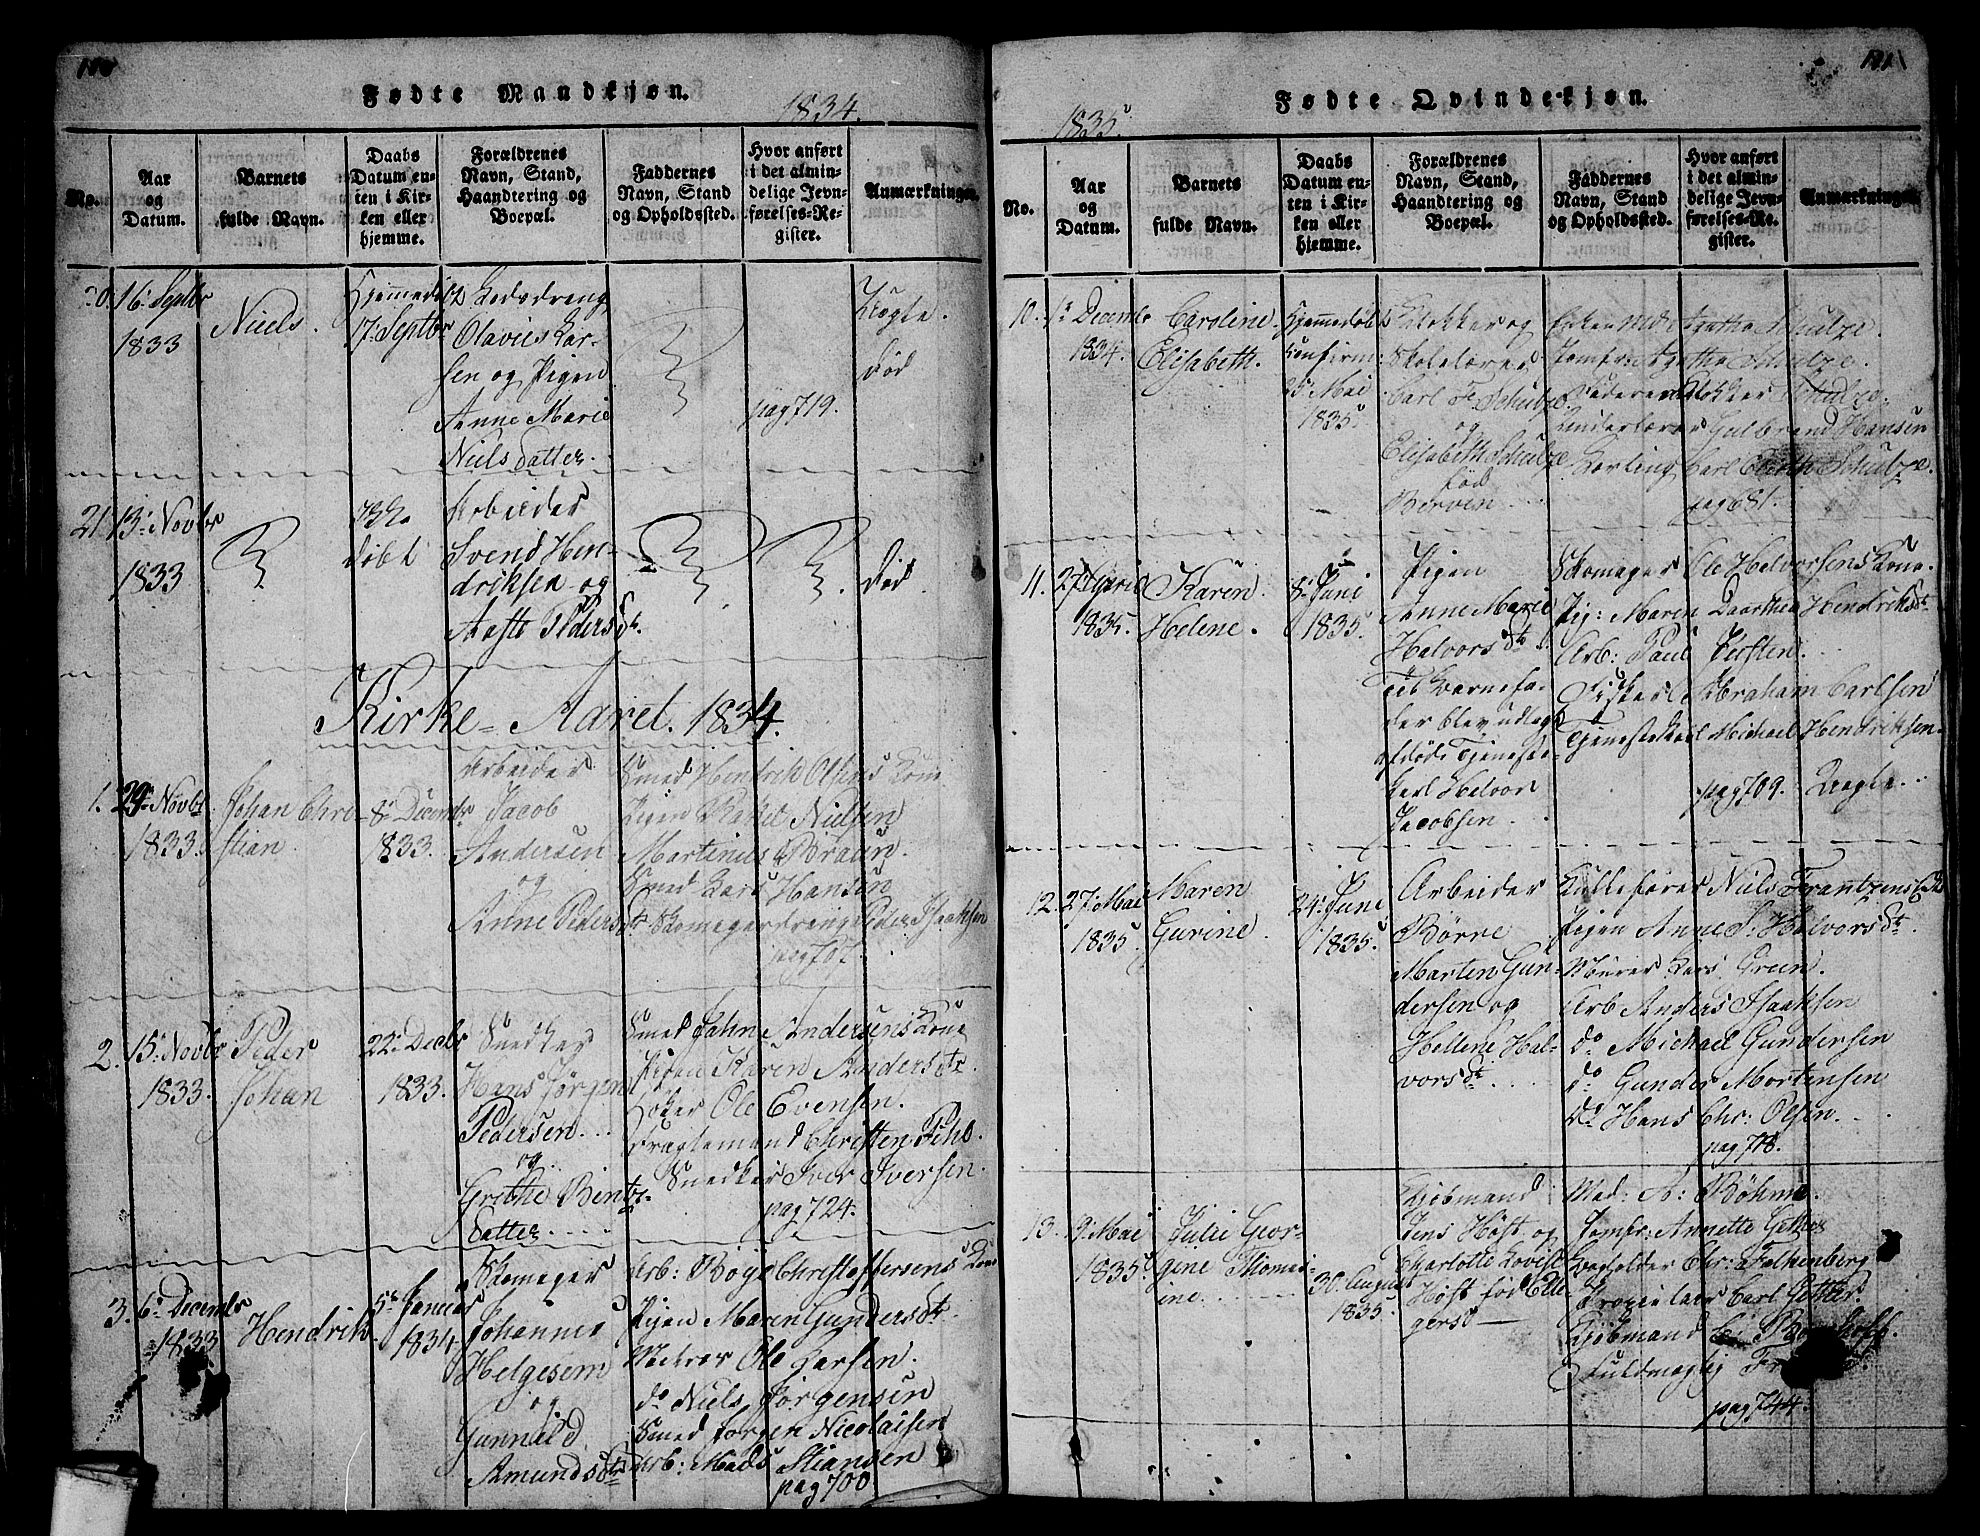 Fødte Mandkjøn.
1834.
No.
Aar og Datum.
Barnets fulde Navn.
Daabs Datum enten i Kirken eller hjemme.
Forældrenes Navn, Stand, Haandtering og Boepæl.
Faddernes Navn, Stand og Opholdssted.
Hvor anført i det almindelige Jevnførelses-Register.
Anmærkninger.
16. Septbr
1833
Niels.
Hjemmedøbt
17. Septbr
Olavies Lar-
sen og Pigen
Anne Marie
Niels Datter.
pag 719.
Død
21
13. Novbr
1833
døbt
Arbeider
Svend Hen-
driksen og
Peders Dtr.
Død
Kirke-Aaret. 1834.
1.
29. Novbr
1833.
Johan Chri-
stian
8. Decembr
1833.
Arbeider
Jacob
Andersen
og
Anne Peders Dtr
Smed Hendrik Olsens Kone
Pigen Rakel Nielsen
Martinus Braun.
Smed Lars Hansen
Skomagerdreng Peder Isaaksen
pag 707.
2.
15. Novbr
1833.
Peder
Johan
22. Decbr
1833.
Snedker
Hans Jørgen
Pedersen
og
Grethe Bentz-
datter
Smed Jahn Andersens Kone
Pigen Karen Anders Dtr.
Ole Evensen.
Fragtemand Christen Pihl.
Snedker Iver Iversen.
pag 724.
3.
6. Decembr
1833
Hendrik
5. Januar
1834.
Skomager
Johannes
Helgesen
og
Gunnild
Amunds Dtr
Arb: Børge Christoffersens Kone
Pigen Maren Gunders Dtr.
Murer Ole Larsen.
do Niels Jørgensen
Smed Jørgen Nicolaisen
Arb: Mads Stiansen
pag 700
121
Fødte Qvindekjøn.
1835.
No.
Aar og Datum.
Barnets fulde Navn.
Daabs Datum enten i Kirken eller hjemme.
Forældrenes Navn, Stand, Haandtering og Boepæl.
Faddernes Navn, Stand og Opholdssted.
Hvor anført i det almindelige Jevnførelses-Register.
Anmærkninger.
10.
1. Decembr
1834.
Caroline
Elisabeth.
Hjemmedøbt
Confirm:
25. Mai
1835.
Klokker og
Skolelærer
Carl Schultze
og
Elisabeth Schultze
fød
Berven
Enken Md Agatha Schultze.
Jomfr: Agatha Schultze.
Klokker Schultze.
Underlærer Gulbrand Hansen
Carl Schultze.
pag 681.
11.
27. April
1835.
Karen
Helene.
8. Juni
1835.
Pigen
Anne Marie
Halvors Dtr
Til Barnefa-
der blev udlagt
afdøde Tjeneste-
karl Halvor
Jacobsen.
Skomager Ole Halvorsens Kone.
Pig: Maren Daarthea Hendriks Dtr.
Arb: Paul
Fisker Abraham Carlsen
Tjenestekarl Michael Hendriksen.
pag 709.
Uægte.
12.
27. Mai
1835.
Maren
Gurine
24. Juni
1835.
Arbeider
Børre
Marten Gun-
dersen og
Hellene Hal-
vors Dtr.
Niels Frantzens
Pigen Anne S. Halvors Dtr.
Murer Lars Green.
Arb Anders Isaaksen
do Michael Gundersen
do Gunder Mortensen
do Hans Chr: Olsen.
pag 718.
13.
9. Mai
1835.
Julie Geor-
gine Thomi-
ine.
30. August
1835.
Kjøbmand
Jens Høst og
Charlotte Lovise
Høst fød Elle-
gers
Mad: A: Bøhme.
Jomfr: Annette
Chr: Falkenberg
Carl
Kjøbmand
Fuldmægtig
pag 744.